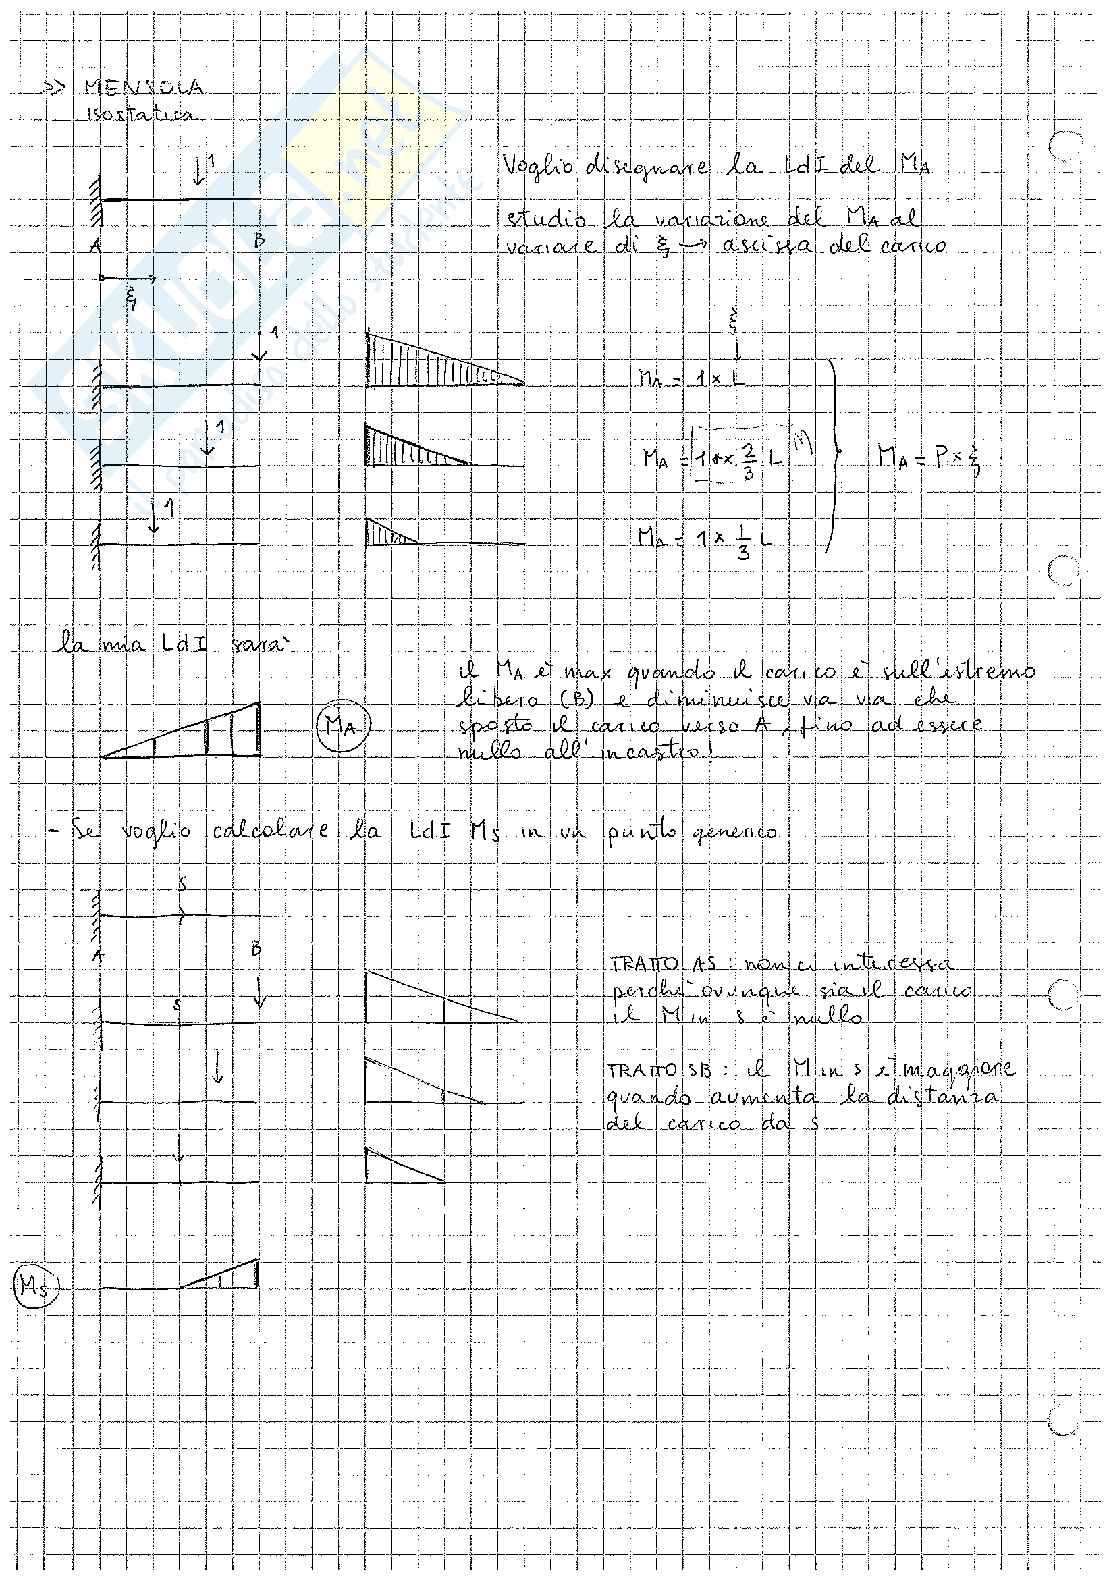 >> MENSOLA
Isostatica
1
Voglio disegnare la LdI del MA
A
B
studio la variazione del MA al
variare di ξ → ascissa del carico
ξ
1
ξ
MA = 1 × L
1
MA = 1 × 2/3 L
MA = P × ξ
1
MA = 1 × 1/3 L
la mia LdI sarà
il MA è max quando il carico è sull'estremo
libero (B) e diminuisce via via che
MA
sposto il carico verso A, fino ad essere
nullo all'incastro!
- Se voglio calcolare la LdI MS in un punto generico
S
A
B
TRATTO AS: non ci interessa
perché ovunque sia il carico
S
il M in S è nullo
TRATTO SB: il M in S è maggiore
quando aumenta la distanza
del carico da S
MS